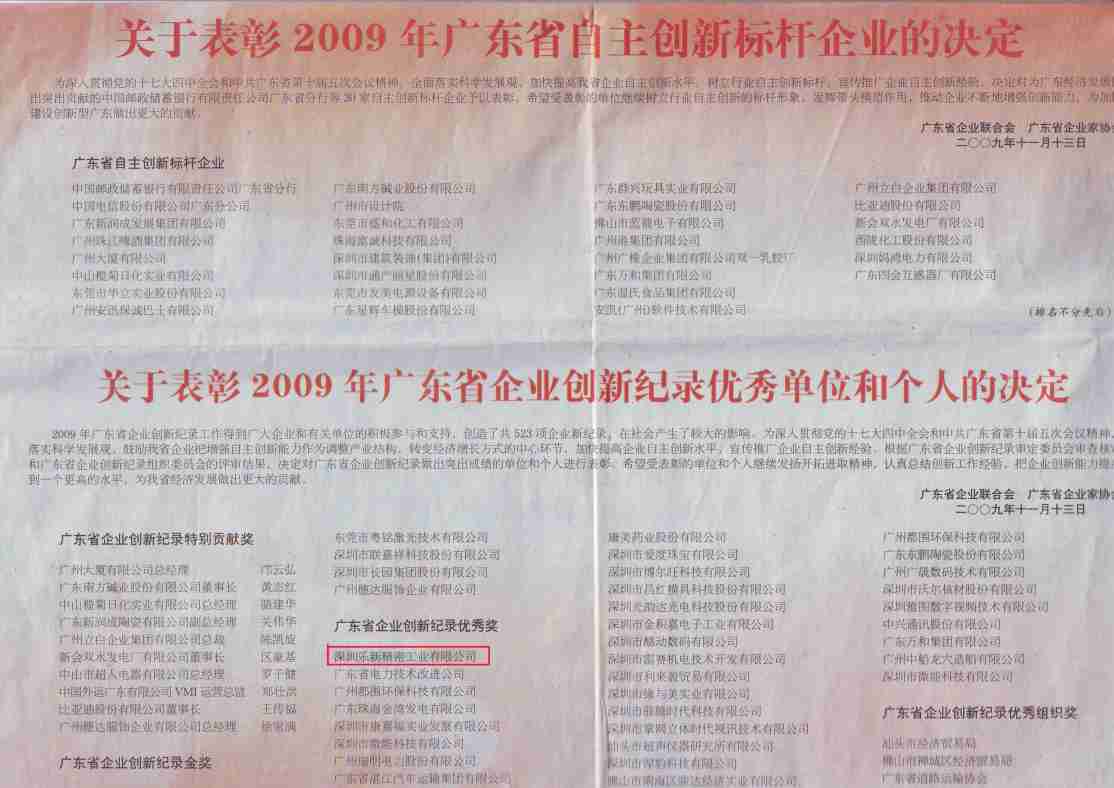 关于表彰 2009 年广东省自主创新标杆企业的决定
为深入贯彻党的十七大四中全会和中共广东省第十届五次会议精神，全面落实科学发展观，加快提高我省企业自主创新水平，树立行业自主创新标杆，宣传推广企业自主创新经验，决定对为广东经济发展
出突出贡献的中国邮政储蓄银行有限责任公司广东省分行等 30 家自主创新标杆企业予以表彰，希望受表彰的单位继续树立行业自主创新的标杆形象，发挥带头模范作用，推动企业不断地增强创新能力，为加
建设创新型广东做出更大的贡献。
广东省企业联合会 广东省企业家协
二〇〇九年十一月十三日
广东省自主创新标杆企业
中国邮政储蓄银行有限责任公司广东省分行
中国电信股份有限公司广东分公司
广东新润成发展集团有限公司
广州珠江啤酒集团有限公司
广州大厦有限公司
中山榄菊日化实业有限公司
东莞市华立实业股份有限公司
广州安迅保诚巴士有限公司
广东南方碱业股份有限公司
广州市设计院
东莞市盛和化工有限公司
珠海富诚科技有限公司
深圳市建筑装饰(集团)有限公司
深圳市通产丽星股份有限公司
东莞市友美电源设备有限公司
广东星辉车模股份有限公司
广东群兴玩具实业有限公司
广东东鹏陶瓷股份有限公司
佛山市蓝箭电子有限公司
广州港集团有限公司
广州广橡企业集团有限公司双一乳胶厂
广东万和集团有限公司
广东温氏食品集团有限公司
安凯(广州)软件技术有限公司
广州立白企业集团有限公司
比亚迪股份有限公司
新会双水发电厂有限公司
西陇化工股份有限公司
深圳妈湾电力有限公司
广东四会互感器厂有限公司
(排名不分先后)
关于表彰 2009 年广东省企业创新纪录优秀单位和个人的决定
2009 年广东省企业创新纪录工作得到广大企业和有关单位的积极参与和支持，创造了共 523 项企业新纪录，在社会产生了较大的影响。为深入贯彻党的十七大四中全会和中共广东省第十届五次会议精神，
落实科学发展观，鼓励我省企业把增强自主创新能力作为调整产业结构、转变经济增长方式的中心环节，加快提高企业自主创新水平，宣传推广企业自主创新经验。根据广东省企业创新纪录审定委员会审查核
和广东省企业创新纪录组织委员会的评审结果，决定对广东省企业创新纪录做出突出成绩的单位和个人进行表彰。希望受表彰的单位和个人继续发扬开拓进取精神，认真总结创新工作经验，把企业创新能力提
到一个更高的水平，为我省经济发展做出更大的贡献。
广东省企业联合会 广东省企业家协
二〇〇九年十一月十三日
广东省企业创新纪录特别贡献奖
广州大厦有限公司总经理 邝云弘
广东南方碱业股份有限公司董事长 黄志红
中山榄菊日化实业有限公司总经理 骆建华
广东新润成陶瓷有限公司副总经理 关伟华
广州立白企业集团有限公司总裁 陈凯旋
新会双水发电厂有限公司董事长 区豪基
中山市超人电器有限公司总经理 罗子健
中国外运广东有限公司 VMI 运营总监 郑壮滨
比亚迪股份有限公司董事长 王传福
广州穗达服饰企业有限公司总经理 徐家满
广东省企业创新纪录金奖
东莞市粤铭激光技术有限公司
深圳市联嘉祥科技股份有限公司
深圳市长园集团股份有限公司
广州穗达服饰企业有限公司
广东省企业创新纪录优秀奖
深圳乐新精密工业有限公司
广东省电力技术改进公司
广州都围环保科技有限公司
广东珠海金湾发电有限公司
深圳市康嘉福实业发展有限公司
深圳市微能科技有限公司
广州瑞明电力股份有限公司
广东省湛江汽车运输集团有限公司
康美药业股份有限公司
深圳市爱度珠宝有限公司
深圳市博尔旺科技有限公司
深圳市昌红模具科技股份有限公司
深圳光韵达光电科技股份有限公司
深圳市金积嘉电子工业有限公司
深圳市酷动数码有限公司
深圳市雷赛机电技术开发有限公司
深圳市利来源贸易有限公司
深圳市缘与美实业有限公司
深圳市蓝韵时代科技有限公司
深圳市掌网立体时代视讯技术有限公司
汕头市超声仪器研究所有限公司
深圳市淳豹科技有限公司
佛山市南海区雅达经济实业有限公司
广州都围环保科技有限公司
广东东鹏陶瓷股份有限公司
广州广晟数码技术有限公司
深圳市沃尔核材股份有限公司
深圳雅图数字视频技术有限公司
中兴通讯股份有限公司
广东万和集团有限公司
广州中船龙穴造船有限公司
深圳市微能科技有限公司
广东省企业创新纪录优秀组织奖
汕头市经济贸易局
佛山市禅城区经济贸易局
广东省道路运输协会